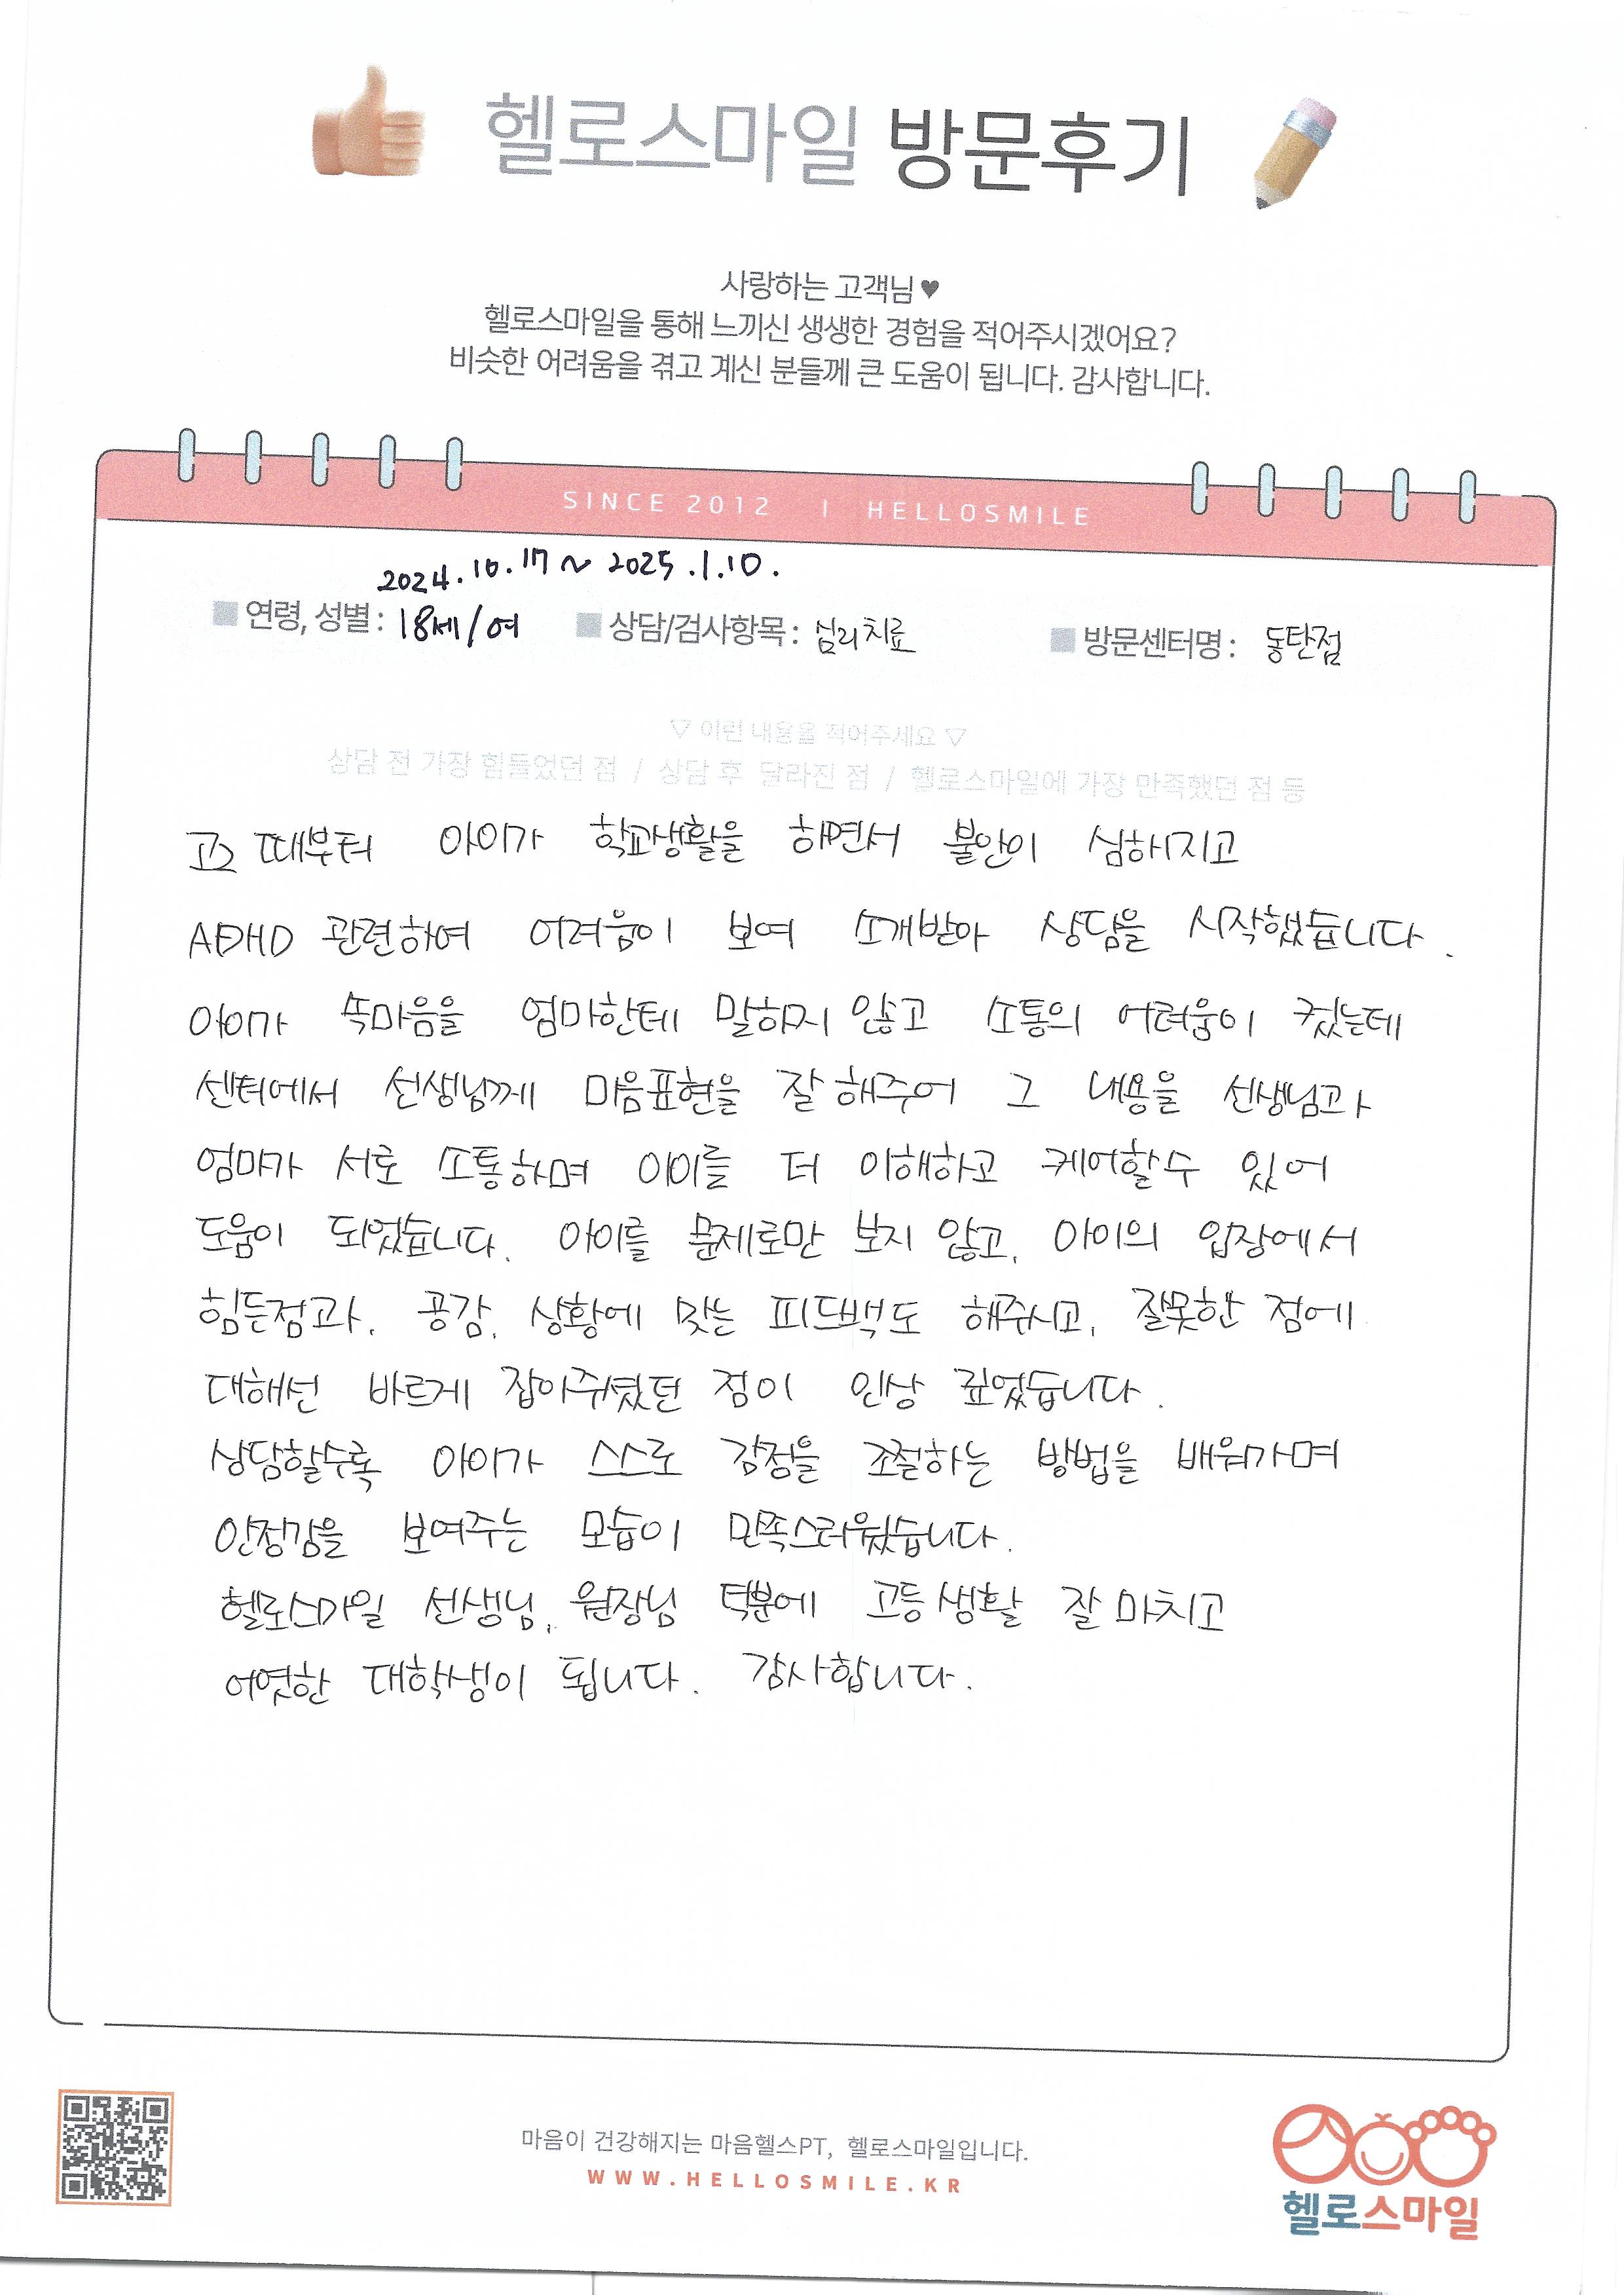 헬로스마일 방문후기
사랑하는 고객님♥
헬로스마일을 통해 느끼신 생생한 경험을 적어주시겠어요?
비슷한 어려움을 겪고 계신 분들께 큰 도움이 됩니다. 감사합니다.
SINCE 2012 | HELLOSMILE
2024.10.17 ~ 2025.1.10.
■ 연령, 성별 : 18세/여 ■ 상담/검사항목 : 심리치료 ■ 방문센터명 : 동탄점
▽ 이런 내용을 적어주세요 ▽
상담 전 가장 힘들었던 점 / 상담 후 달라진 점 / 헬로스마일에 가장 만족했던 점 등
고2 때부터 아이가 학교생활을 하면서 불안이 심해지고
ADHD 관련하여 어려움이 보여 소개받아 상담을 시작했습니다.
아이가 속마음을 엄마한테 말하지 않고 소통의 어려움이 컸는데
센터에서 선생님께 마음표현을 잘 해주어 그 내용을 선생님과
엄마가 서로 소통하며 아이를 더 이해하고 케어할수 있어
도움이 되었습니다. 아이를 문제로만 보지 않고, 아이의 입장에서
힘든점과, 공감, 상황에 맞는 피드백도 해주시고, 잘못한 점에
대해선 바르게 잡아주셨던 점이 인상 깊었습니다.
상담할수록 아이가 스스로 감정을 조절하는 방법을 배워가며
안정감을 보여주는 모습이 만족스러웠습니다.
헬로스마일 선생님, 원장님 덕분에 고등생활 잘 마치고
어엿한 대학생이 됩니다. 감사합니다.
마음이 건강해지는 마음헬스PT, 헬로스마일입니다.
WWW.HELLOSMILE.KR
헬로스마일